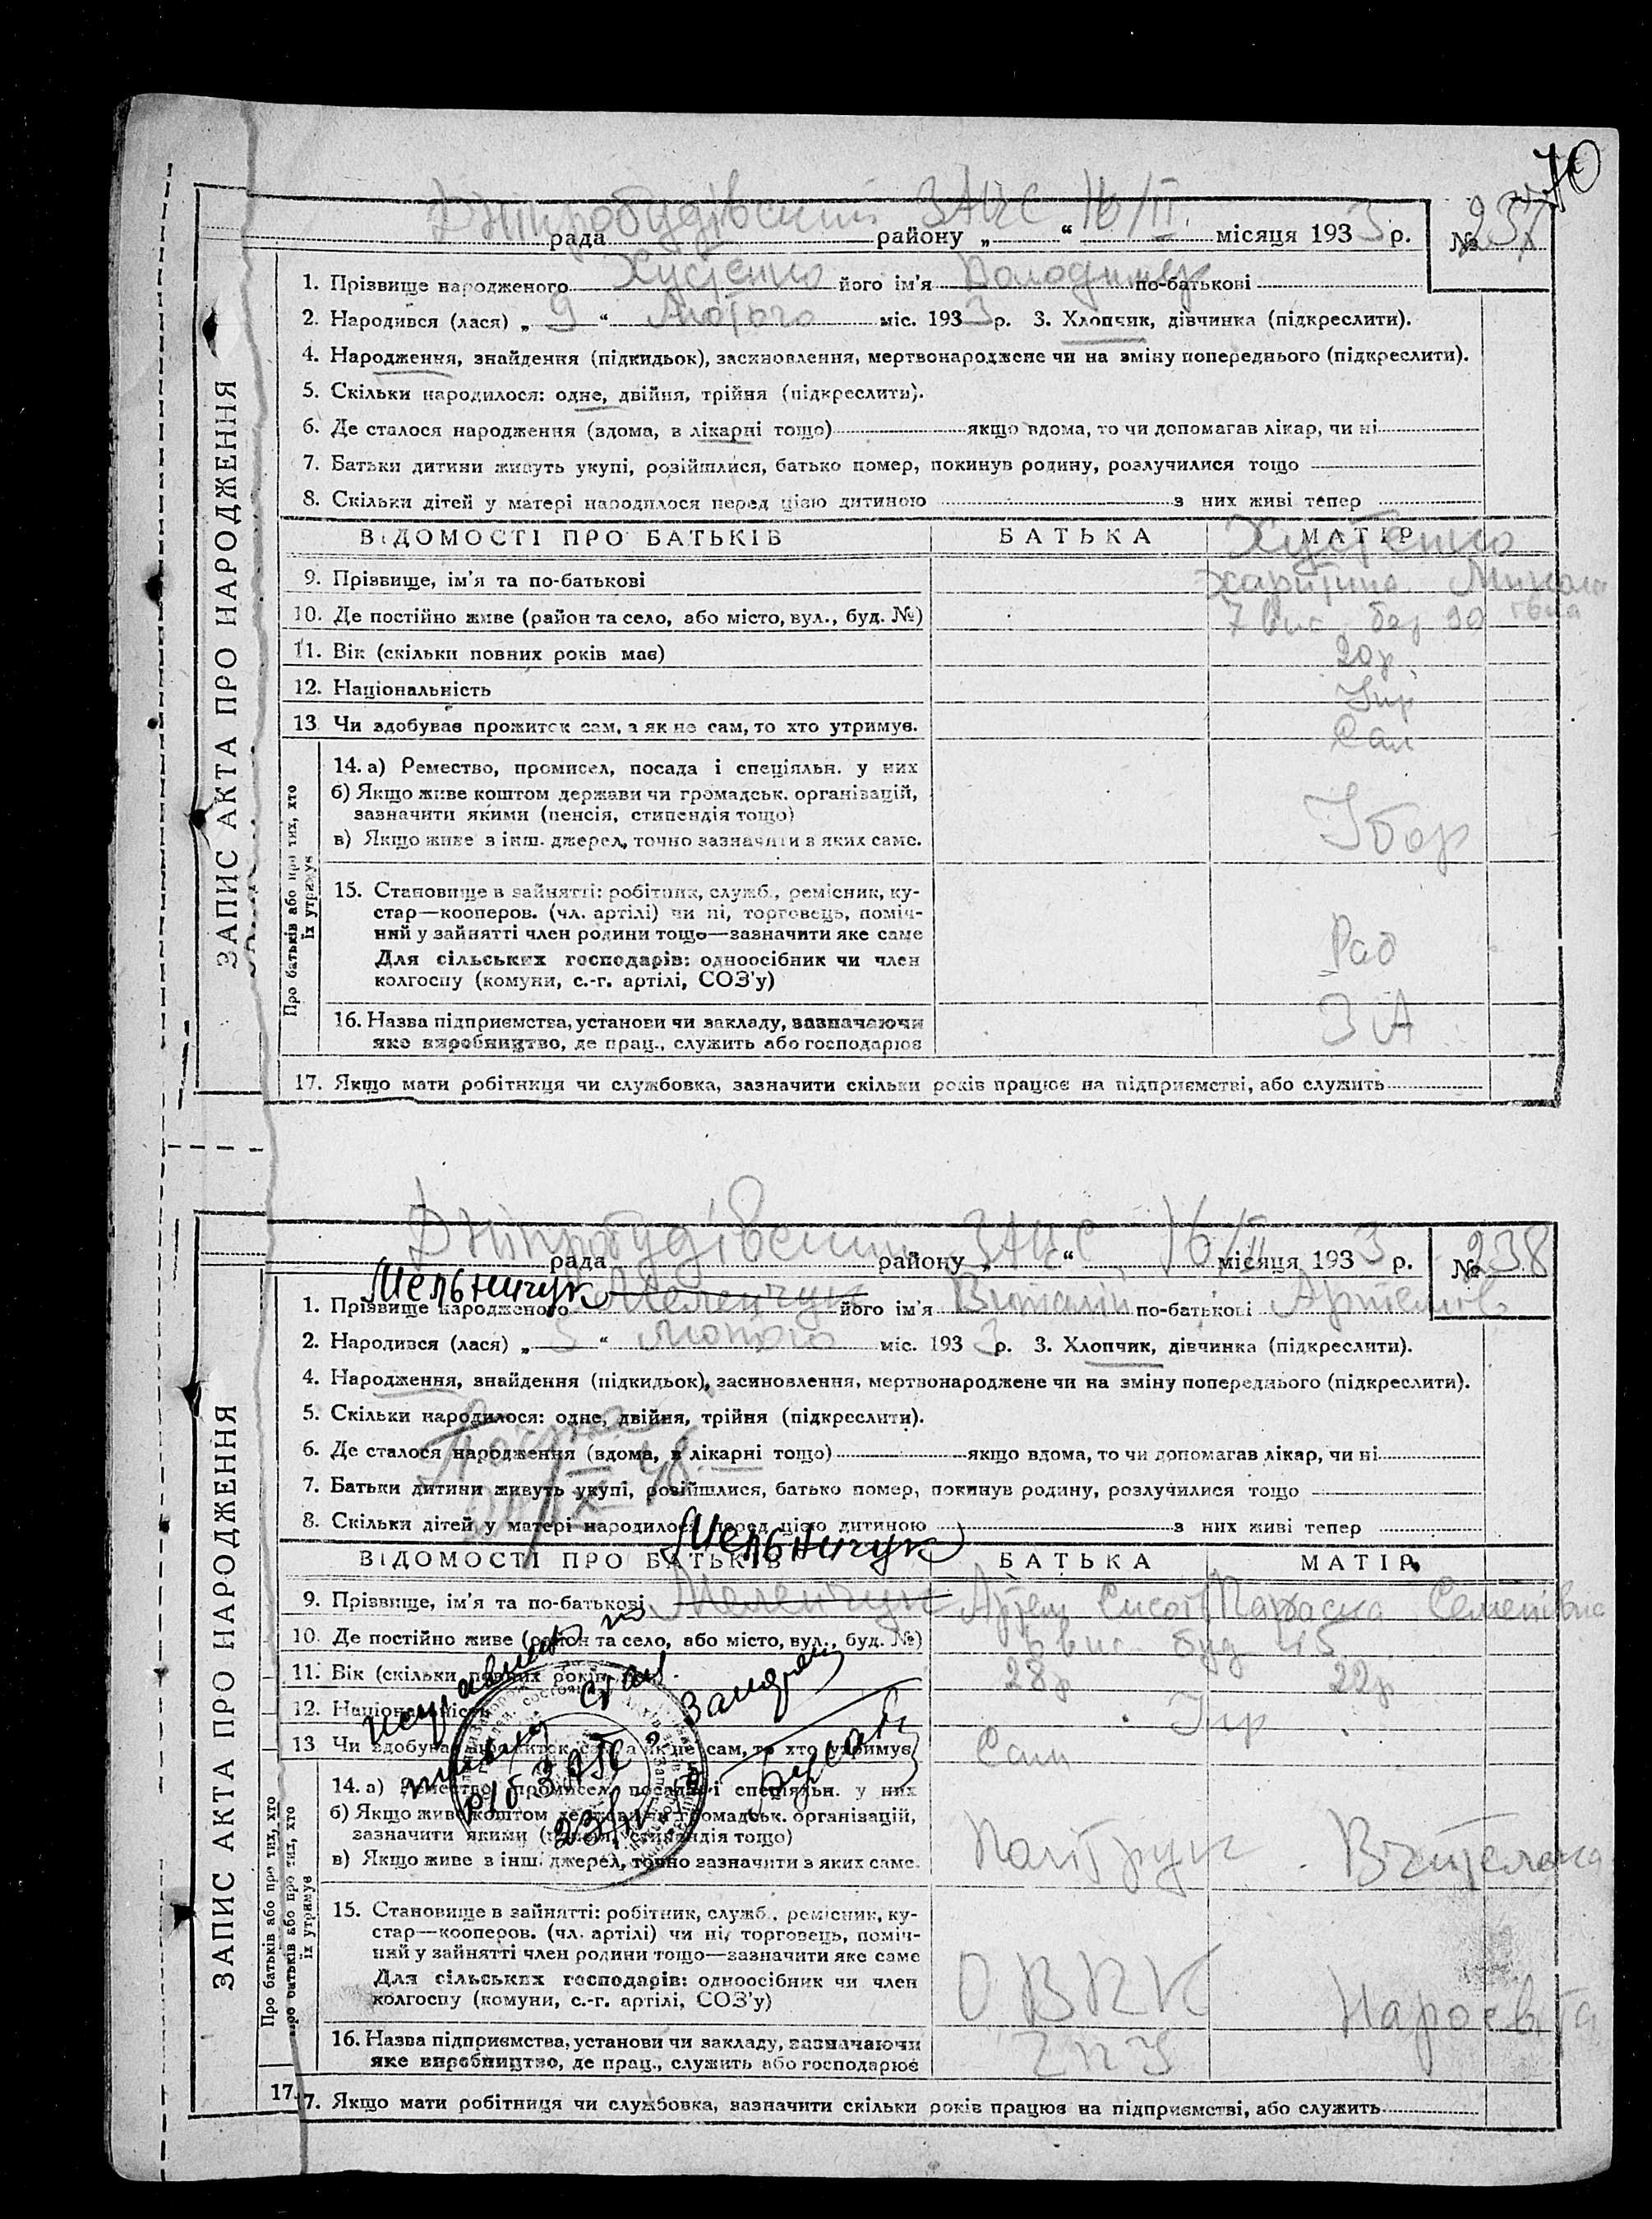 70
Дніпробудівський ЗАГС 16/II
рада района „ “ місяця 1933 р. № 237
1. Прізвище народженого Хустенко його ім'я Володимир по-батькові
2. Народився (лася) „ 9 “ Лютого міс. 1933 р. 3. Хлопчик, дівчинка (підкреслити).
4. Народження, знайдення (підкидьок), засиновлення, мертвонароджене чи на зміну попереднього (підкреслити).
5. Скільки народилося: одне, двійня, трійня (підкреслити).
6. Де сталося народження (вдома, в лікарні тощо) якщо вдома, то чи допомагав лікар, чи ні
7. Батьки дитини живуть укупі, розійшлися, батько помер, покинув родину, розлучилися тощо
8. Скільки дітей у матері народилося перед цією дитиною з них живі тепер
ВІДОМОСТІ ПРО БАТЬКІВ БАТЬКА МАТІР
Хустенко
9. Прізвище, ім'я та по-батькові Харитина Миколаївна
10. Де постійно живе (район та село, або місто, вул., буд. №) 7 вис. бар 90
11. Вік (скільки повних років має) 20р
12. Національність Укр
13. Чи здобуває прожиток сам, а як не сам, то хто утримує. Сам
Про батьків або про тих, хто їх утримує
14. а) Ремество, промисел, посада і спеціяльн. у них
б) Якщо живе коштом держави чи громадськ. організацій,
зазначити якими (пенсія, стипендія тощо)
в) Якщо живе з інш. джерел, точно зазначити з яких саме.
15. Становище в зайнятті: робітник, служб., ремісник, ку-
стар—кооперов. (чл. артілі) чи ні, торговець, поміч-
ний у зайнятті член родини тощо—зазначити яке саме
Для сільських господарів: одноосібник чи член
колгоспу (комуни, с.-г. артілі, СОЗ'у)
16. Назва підприємства, установи чи закладу, зазначаючи
яке виробництво, де прац., служить або господарює
17. Якщо мати робітниця чи службовка, зазначити скільки років працює на підприємстві, або служить
ЗАПИС АКТА ПРО НАРОДЖЕННЯ
Дніпробудівський ЗАГС 16/II
рада району „ “ місяця 1933 р. № 238
Мельничук
1. Прізвище народженого Меленчук його ім'я Виталій по-батькові Артемів
2. Народився (лася) „ 5 “ лютого міс. 1933 р. 3. Хлопчик, дівчинка (підкреслити).
4. Народження, знайдення (підкидьок), засиновлення, мертвонароджене чи на зміну попереднього (підкреслити).
5. Скільки народилося: одне, двійня, трійня (підкреслити).
6. Де сталося народження (вдома, в лікарні тощо) якщо вдома, то чи допомагав лікар, чи ні
7. Батьки дитини живуть укупі, розійшлися, батько помер, покинув родину, розлучилися тощо
8. Скільки дітей у матері народилося перед цією дитиною з них живі тепер
Мельничук
ВІДОМОСТІ ПРО БАТЬКІВ БАТЬКА МАТІР
9. Прізвище, ім'я та по-батькові Меленчук Артем Параска Семенівна
10. Де постійно живе (район та село, або місто, вул., буд. №) 6 вис. буд 45
11. Вік (скільки повних років має) 28р 22р
12. Національність Укр
13 Чи здобуває прожиток сам, а як не сам, то хто утримує Сам
Про батьків або про тих, хто їх утримує
14. а) Ремество, промисел, посада і спеціяльн. у них
б) Якщо живе коштом держави чи громадськ. організацій,
зазначити якими (пенсія, стипендія тощо)
в) Якщо живе з інш. джерел, точно зазначити з яких саме.
Політрук Вчителька
15. Становище в зайнятті: робітник, служб., ремісник, ку-
стар—кооперов. (чл. артілі) чи ні, торговець, поміч-
ний у зайнятті член родини тощо—зазначити яке саме
Для сільських господарів: одноосібник чи член
колгоспу (комуни, с.-г. артілі, СОЗ'у)
16. Назва підприємства, установи чи закладу, зазначаючи
яке виробництво, де прац., служить або господарює
17. Якщо мати робітниця чи службовка, зазначити скільки років працює на підприємстві, або служить
ЗАПИС АКТА ПРО НАРОДЖЕННЯ